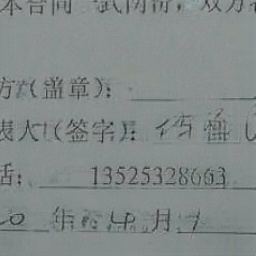 本合同一式两份，双方
方（盖章）：
表人（签字）：
话： 13525328663
20 年 4 月 1